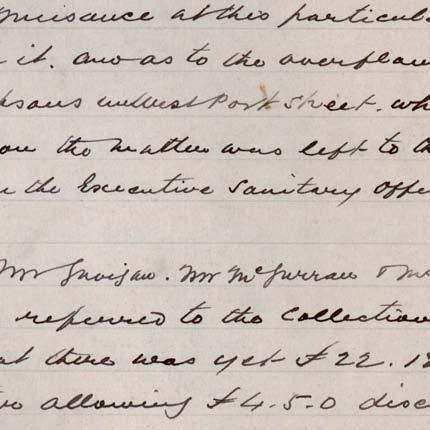 nuisance at this particul
it. and as to the overflow
in West Port Street. wh
on the matter was left to th
the Executive Sanitary Offi
Mr Gavigan. Mr McGurran & Mc
referred to the Collection
at there was yet £22.18
allowing £4.5.0 disc